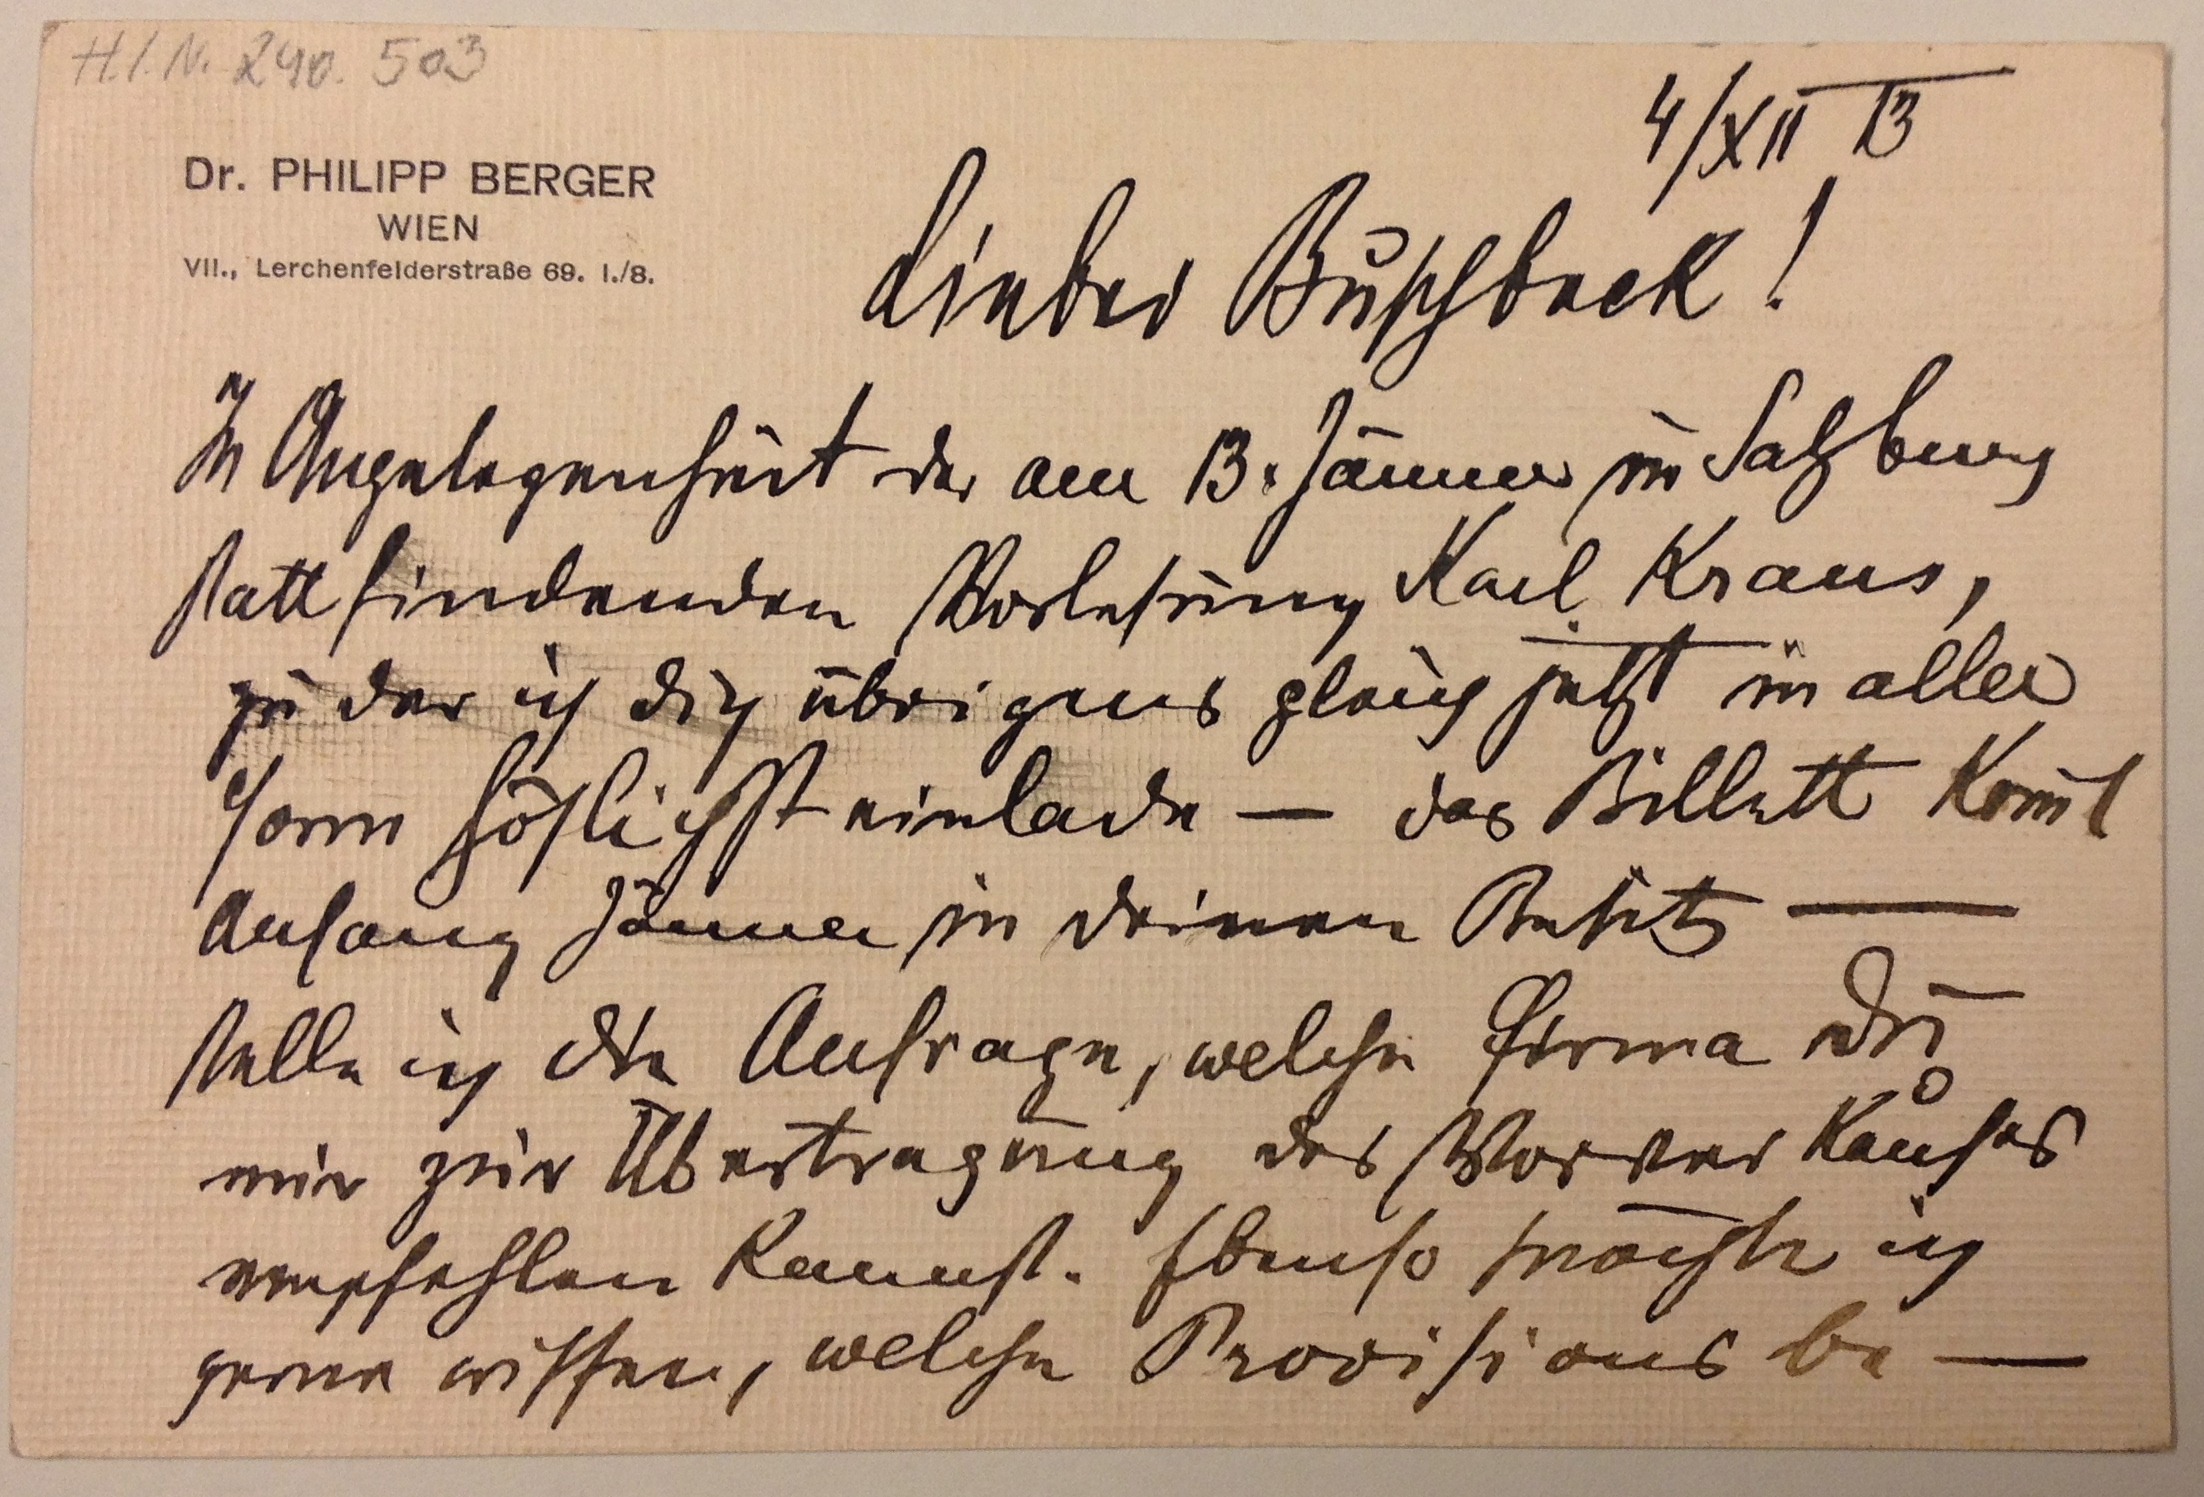 H.I.N. 240.503
4/XII 13
Dr. PHILIPP BERGER
WIEN
VII., Lerchenfelderstraße 69. I./8.
Lieber Buschbeck!
In Angelegenheit der am 13. Jänner in Salzburg
stattfindenden Vorlesung Karl Kraus,
zu der ich dich übrigens gleich jetzt in aller
Form höflichst einlade — das Billett kom̅t
Anfang Jänner in deinen Besitz —
stelle ich die Anfrage, welche Firma du
mir zur Übertragung des Vorverkaufes
empfehlen kannst. Ebenso möchte ich
gerne wissen, welche Provisions be —